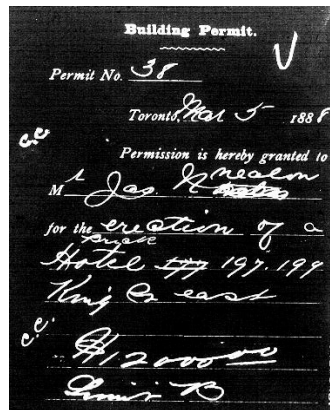 Building Permit.
Permit No. 38
Toronto, Mar 5 1888
c.c.
Permission is hereby granted to
Mr Jas. Nealon
for the erection of a
Hotel 197.199
King St east
c.c.
$12000.00
Limit B